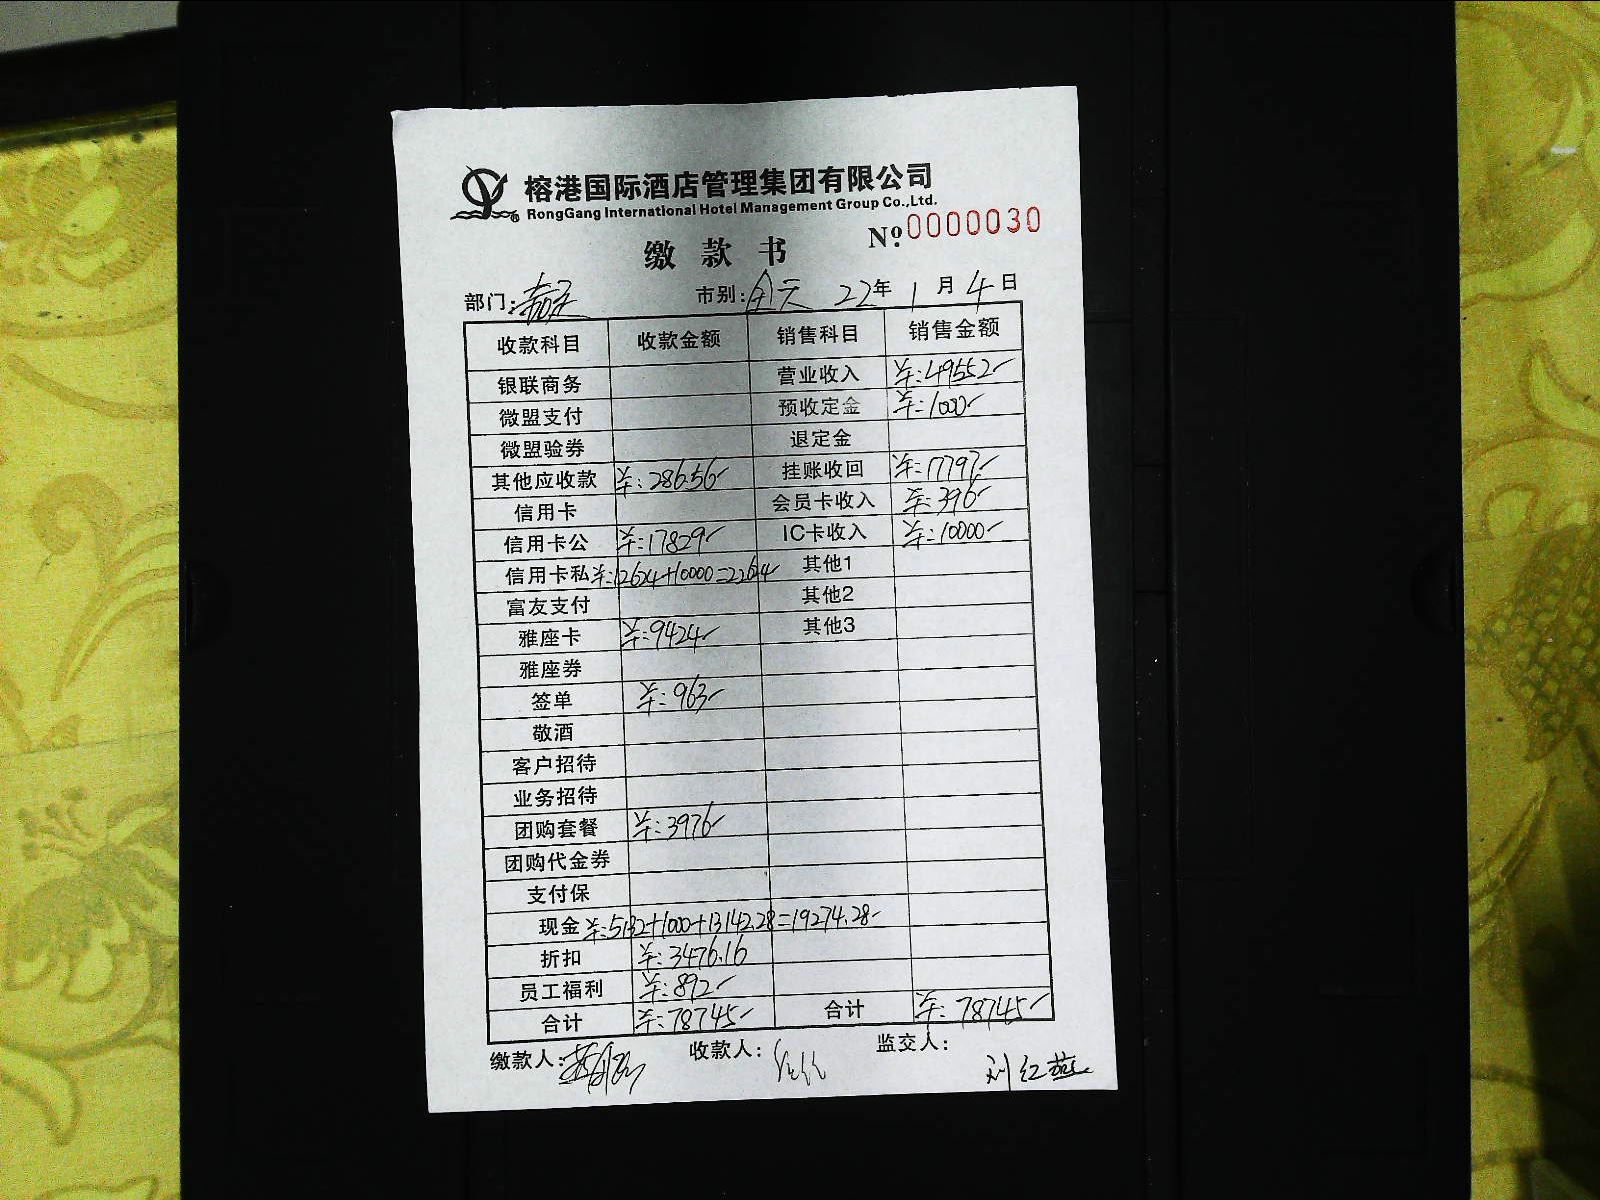 榕港国际酒店管理集团有限公司
RongGang International Hotel Management Group Co.,Ltd.
№ 0000030
缴款书
部门: 市别:全天 22年 1月 4日
收款科目 收款金额 销售科目 销售金额
银联商务 营业收入 羊:49552
微盟支付 预收定金 羊:1000
微盟验券 退定金
其他应收款 羊:286.56 挂账收回 羊:17797
信用卡 会员卡收入 羊:396
信用卡公 羊:17829 IC卡收入 羊:10000
信用卡私 羊:12624+10000=22624 其他1
富友支付 其他2
雅座卡 羊:9424 其他3
雅座券
签单 羊:963
敬酒
客户招待
业务招待
团购套餐 羊:3976
团购代金券
支付保
现金 羊:5132+1000+13142.28=19274.28
折扣 羊:3476.16
员工福利 羊:892
合计 羊:78745 合计 羊:78745
缴款人: 收款人: 监交人:
刘红燕